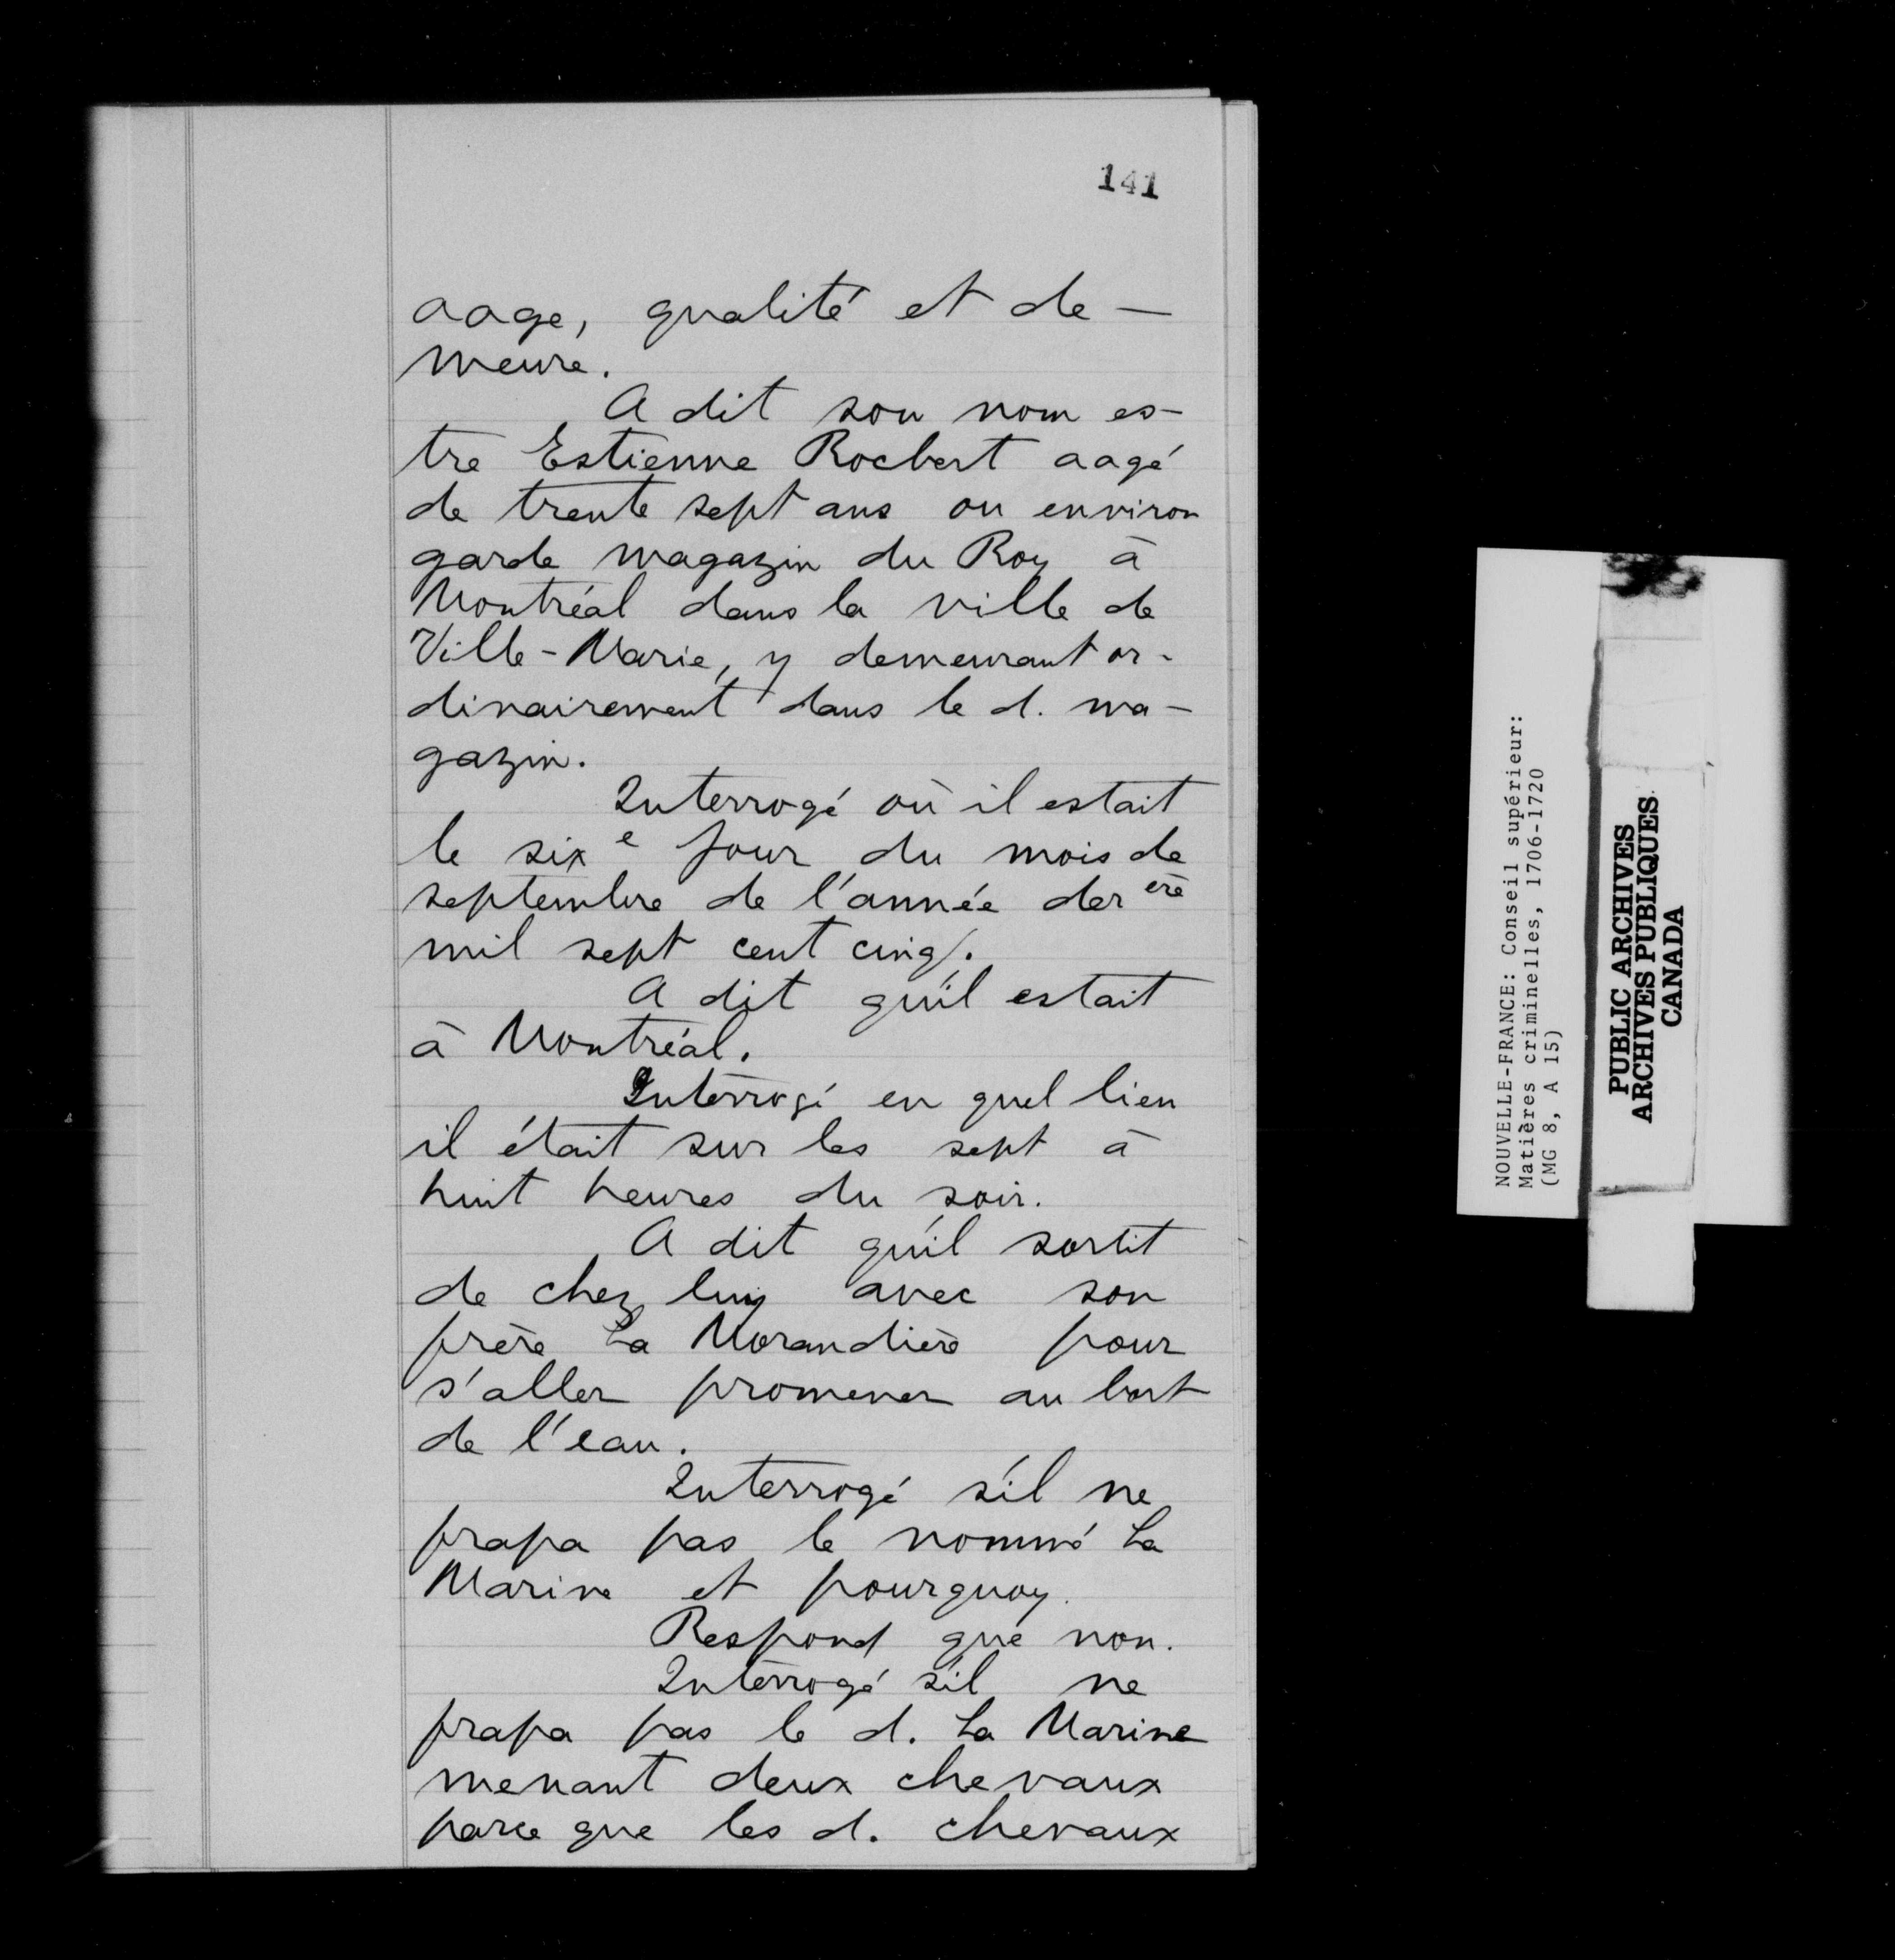 141
aage, qualité et de-
meure.
A dit son nom es-
tre Estienne Rocbert aagé
de trente sept ans ou environ
garde magazin du Roy à
Montréal dans la ville de
Ville-Marie, y demeurant or-
dinairement dans le d. ma-
gazin.
Interrogé où il estait
le sixe jour du mois de
septembre de l'année derère
mil sept cent cinq.
A dit qu'il estait
à Montréal.
Interrogé en quel lieu
il était sur les sept à
huit heures du soir.
A dit qu'il sortit
de chez luy avec son
frère La Morandière pour
s'aller promener au bort
de l'eau.
Interrogé s'il ne
frapa pas le nommé La
Marine et pourquoy.
Respond que non.
Interrogé s'il ne
frapa pas le d. La Marine
menant deux chevaux
parce que les d. chevaux
NOUVELLE-FRANCE: Conseil supérieur:
Matières criminelles, 1706-1720
(MG 8, A 15)
PUBLIC ARCHIVES
ARCHIVES PUBLIQUES
CANADA